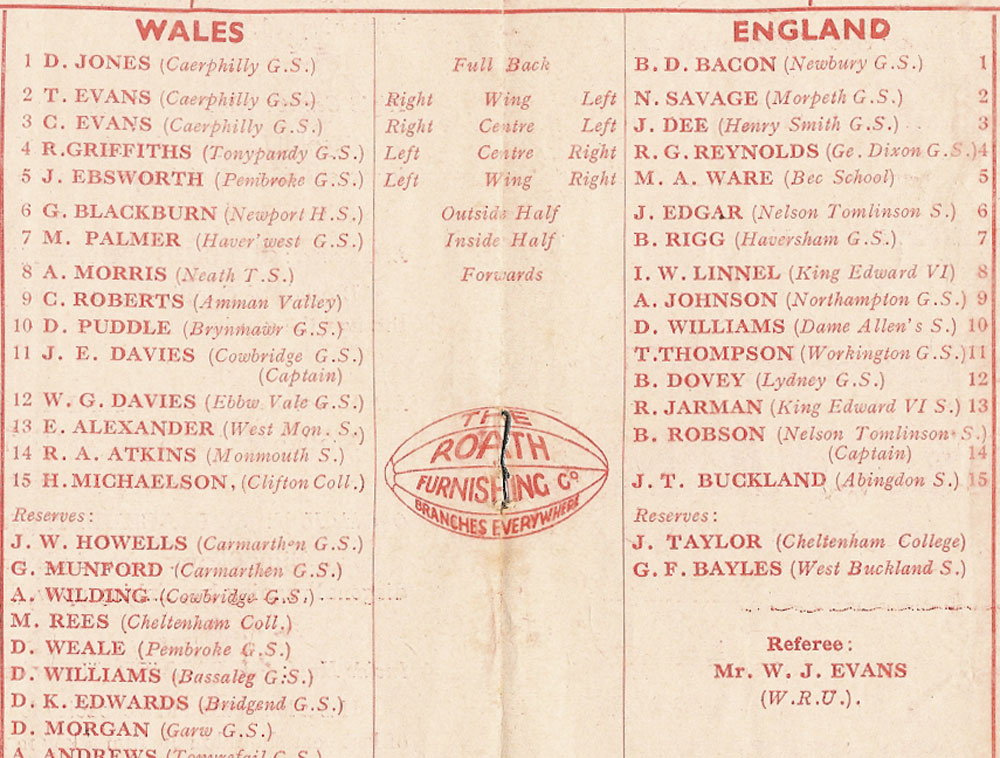 WALES ENGLAND
1 D. JONES (Caerphilly G.S.) Full Back B. D. BACON (Newbury G.S.) 1
2 T. EVANS (Caerphilly G.S.) Right Wing Left N. SAVAGE (Morpeth G.S.) 2
3 C. EVANS (Caerphilly G.S.) Right Centre Left J. DEE (Henry Smith G.S.) 3
4 R.GRIFFITHS (Tonypandy G.S.) Left Centre Right R. G. REYNOLDS (Ge. Dixon G.S.)4
5 J. EBSWORTH (Pembroke G.S.) Left Wing Right M. A. WARE (Bec School) 5
6 G. BLACKBURN (Newport H.S.) Outside Half J. EDGAR (Nelson Tomlinson S.) 6
7 M. PALMER (Haver'west G.S.) Inside Half B. RIGG (Haversham G.S.) 7
8 A. MORRIS (Neath T.S.) Forwards I. W. LINNEL (King Edward VI) 8
9 C. ROBERTS (Amman Valley) A. JOHNSON (Northampton G.S.) 9
10 D. PUDDLE (Brynmawr G.S.) D. WILLIAMS (Dame Allen's S.) 10
11 J. E. DAVIES (Cowbridge G.S.) T.THOMPSON (Workington G.S.)11
(Captain)
12 W. G. DAVIES (Ebbw Vale G.S.) B. DOVEY (Lydney G.S.) 12
13 E. ALEXANDER (West Mon. S.) R. JARMAN (King Edward VI S.) 13
14 R. A. ATKINS (Monmouth S.) B. ROBSON (Nelson Tomlinson S.)
(Captain) 14
15 H.MICHAELSON, (Clifton Coll.) J. T. BUCKLAND (Abingdon S.) 15
THE
ROATH
FURNISHING Co
BRANCHES EVERYWHERE
Reserves: Reserves:
J. W. HOWELLS (Carmarthen G.S.) J. TAYLOR (Cheltenham College)
G. MUNFORD (Carmarthen G.S.) G. F. BAYLES (West Buckland S.)
A. WILDING (Cowbridge G.S.)
M. REES (Cheltenham Coll.)
D. WEALE (Pembroke G.S.)
D. WILLIAMS (Bassaleg G.S.)
D. K. EDWARDS (Bridgend G.S.)
D. MORGAN (Garw G.S.)
A. ANDREWS (Tonyrefail G.S.)
Referee:
Mr. W. J. EVANS
(W.R.U.).